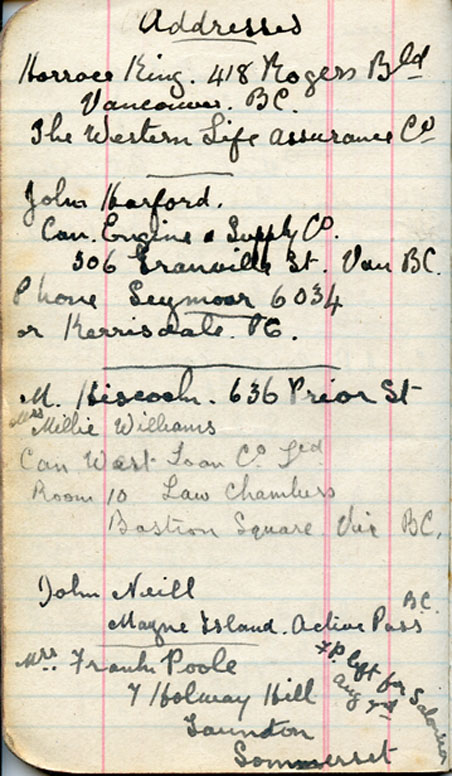 Addresses
Horrace King. 418 Rogers Bld
Vancouver. BC.
The Western Life assurance Co
John Harford.
Can. Engine & Supply Co.
506 Granville St. Van BC.
Phone Seymoor 6034
or Kerrisdale.
M. Hiscock. 636 Prior St
Mrs Millie Williams
Can West Loan Co Ltd.
Room 10 Law Chambers
Bastion Square. Vic BC.
John Neill
Mayne Island. Active Pass BC.
Mrs. Frank Poole
7 Holway Hill
Taunton
Sommerset
F.P. left for
Aug